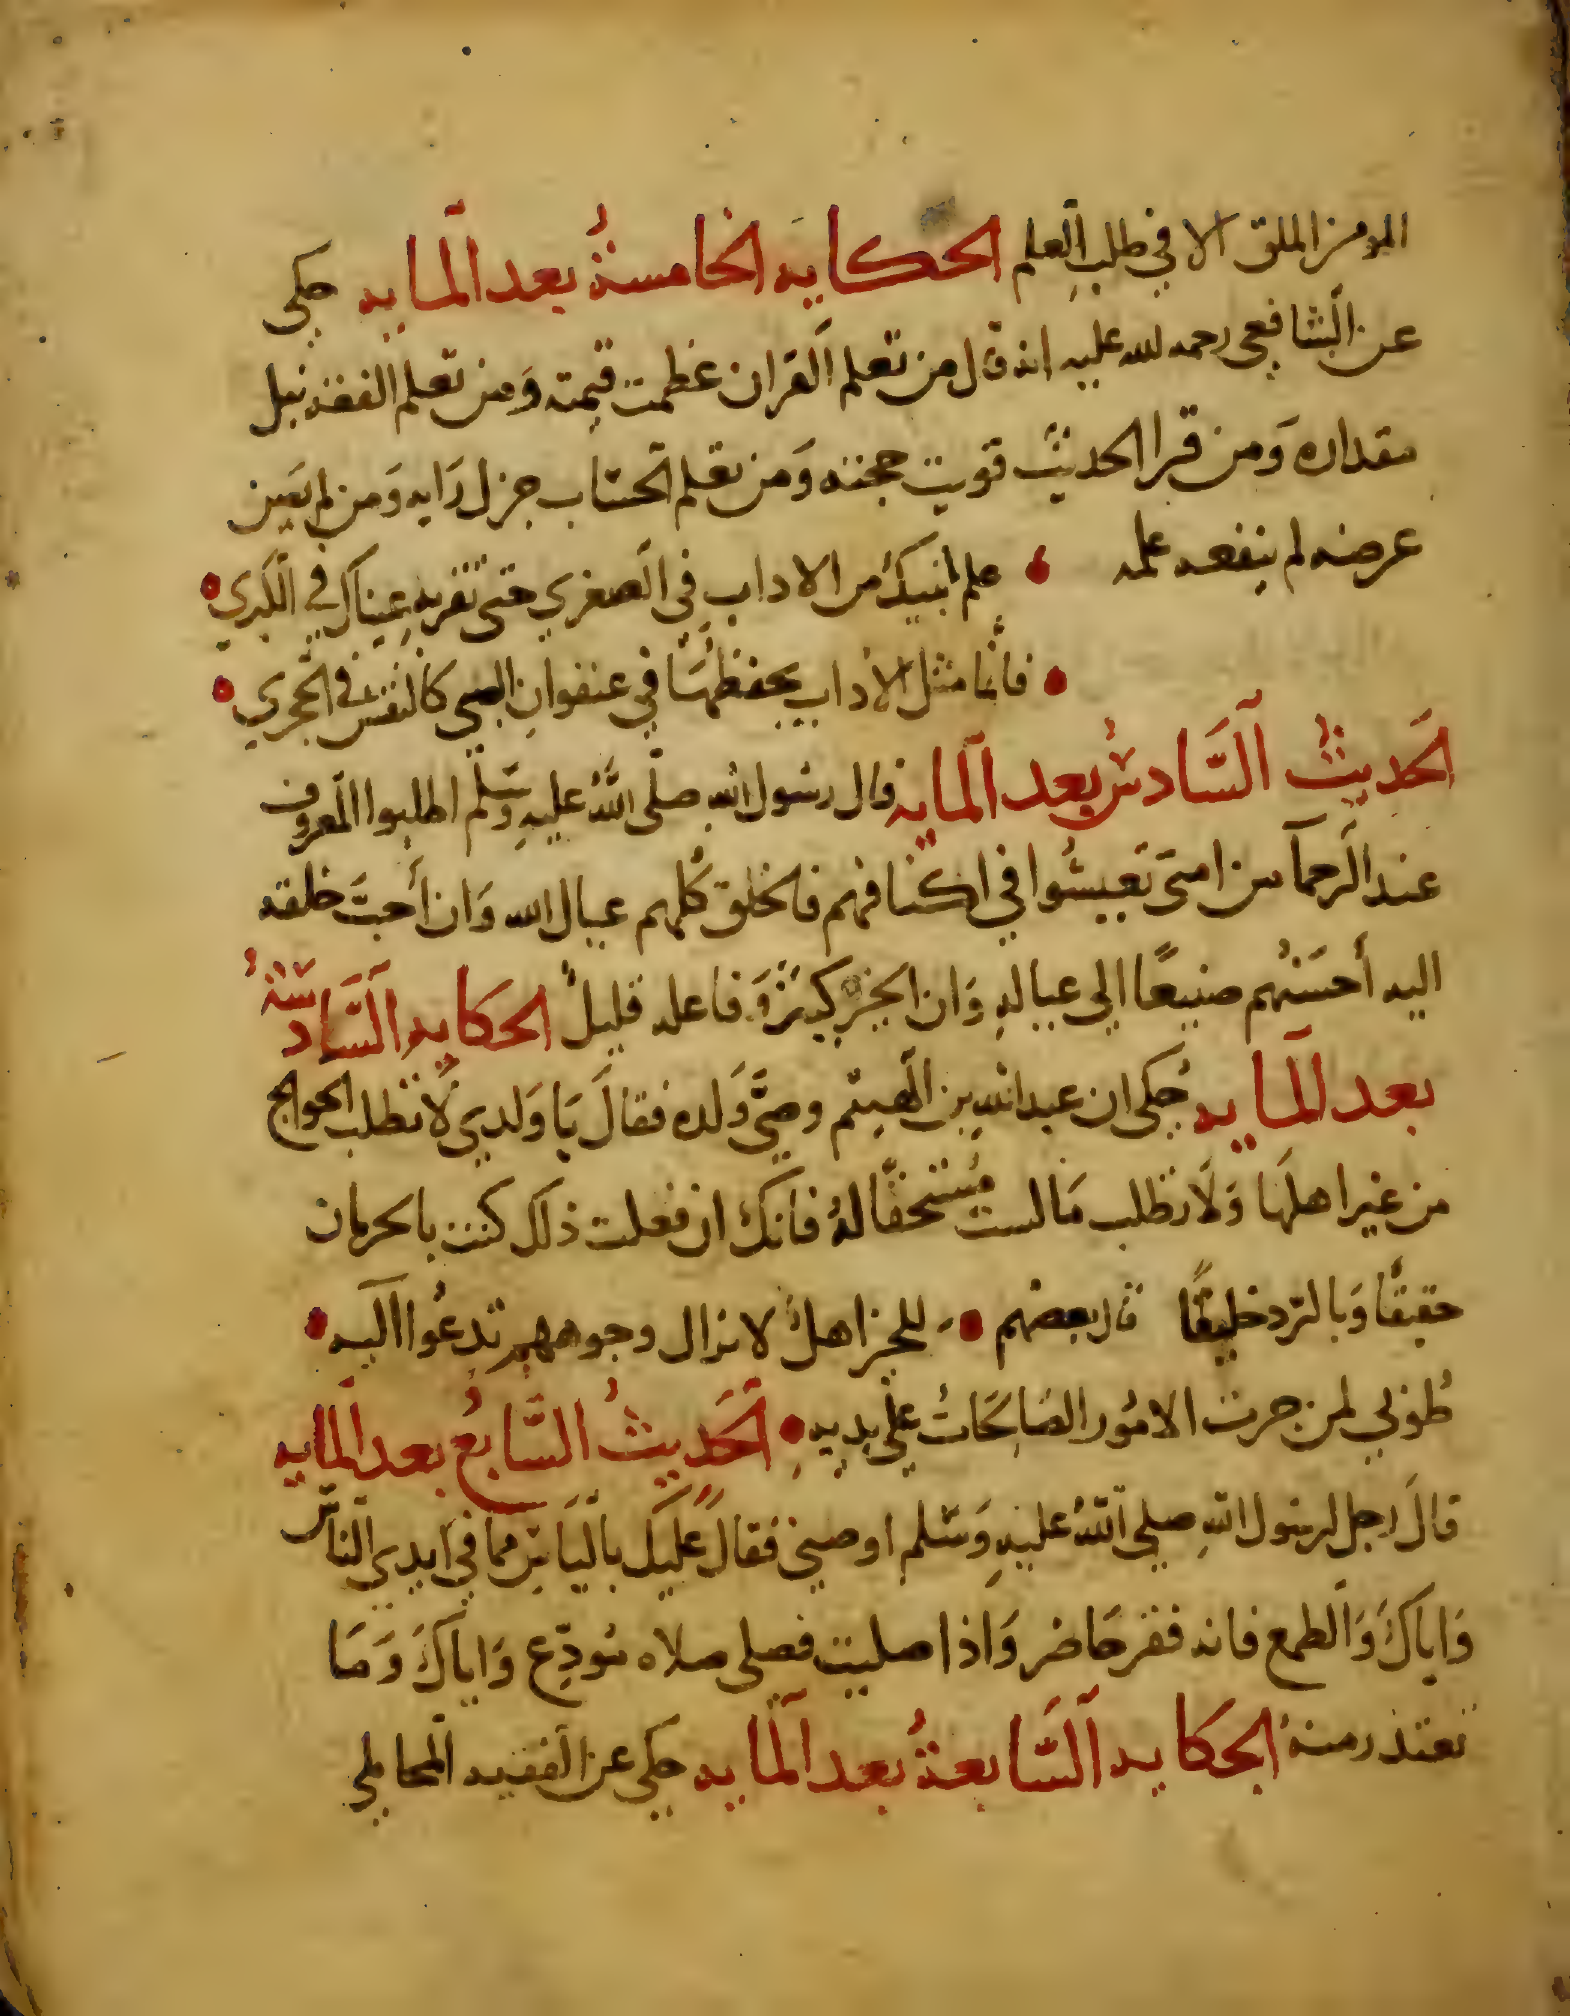 المومن الملق الا في طلب العلم الحكايه الخامسة بعد المايه حكي
عن الشافعي رحمه الله عليه انه قال من تعلم القران عظمت قيمته ومن تعلم الفقه نبل
مقداره ومن قرا الحديث قويت حجته ومن تعلم الحساب جزل رايه ومن لم يصن
عرضه لم ينفعه علمه علم بنيك من الاداب في الصغري حتي تقر به عيناك في الكبري
فانما مثل الاداب يحفظها في عنفوان الصبي كالنقش في الحجري
الحديث السادس بعد المايه قال رسول الله صلى الله عليه وسلم اطلبوا المعروف
عند الرحمآ من امتي تعيشوا في اكنافهم فالخلق كلهم عيال الله وان أحب خلقه
اليه أحسنهم صنيعا الي عياله وان الخير كثير وفاعله قليل الحكايه السادسة
بعد المايه حكي ان عبد الله بن الهيثم وصي ولده فقال يا ولدي لا تطلب الحوايج
من غير اهلها ولا تطلب ما لست مستحقا له فانك ان فعلت ذلك كنت بالحرمان
حقيقا وبالرد خليقا قال بعضهم للخير اهل لا تزال وجوههم تدعوا اليه
طوبي لمن جرت الامور الصالحات علي يديه الحديث السابع بعد المايه
قال رجل لرسول الله صلي الله عليه وسلم اوصيني فقال عليك بالياس مما في ايدي الناس
واياك والطمع فانه فقر حاضر واذا صليت فصلي صلاه مودع واياك وما
تعتذر منه الحكايه السابعة بعد المايه حكي عن الفقيه المحاملي